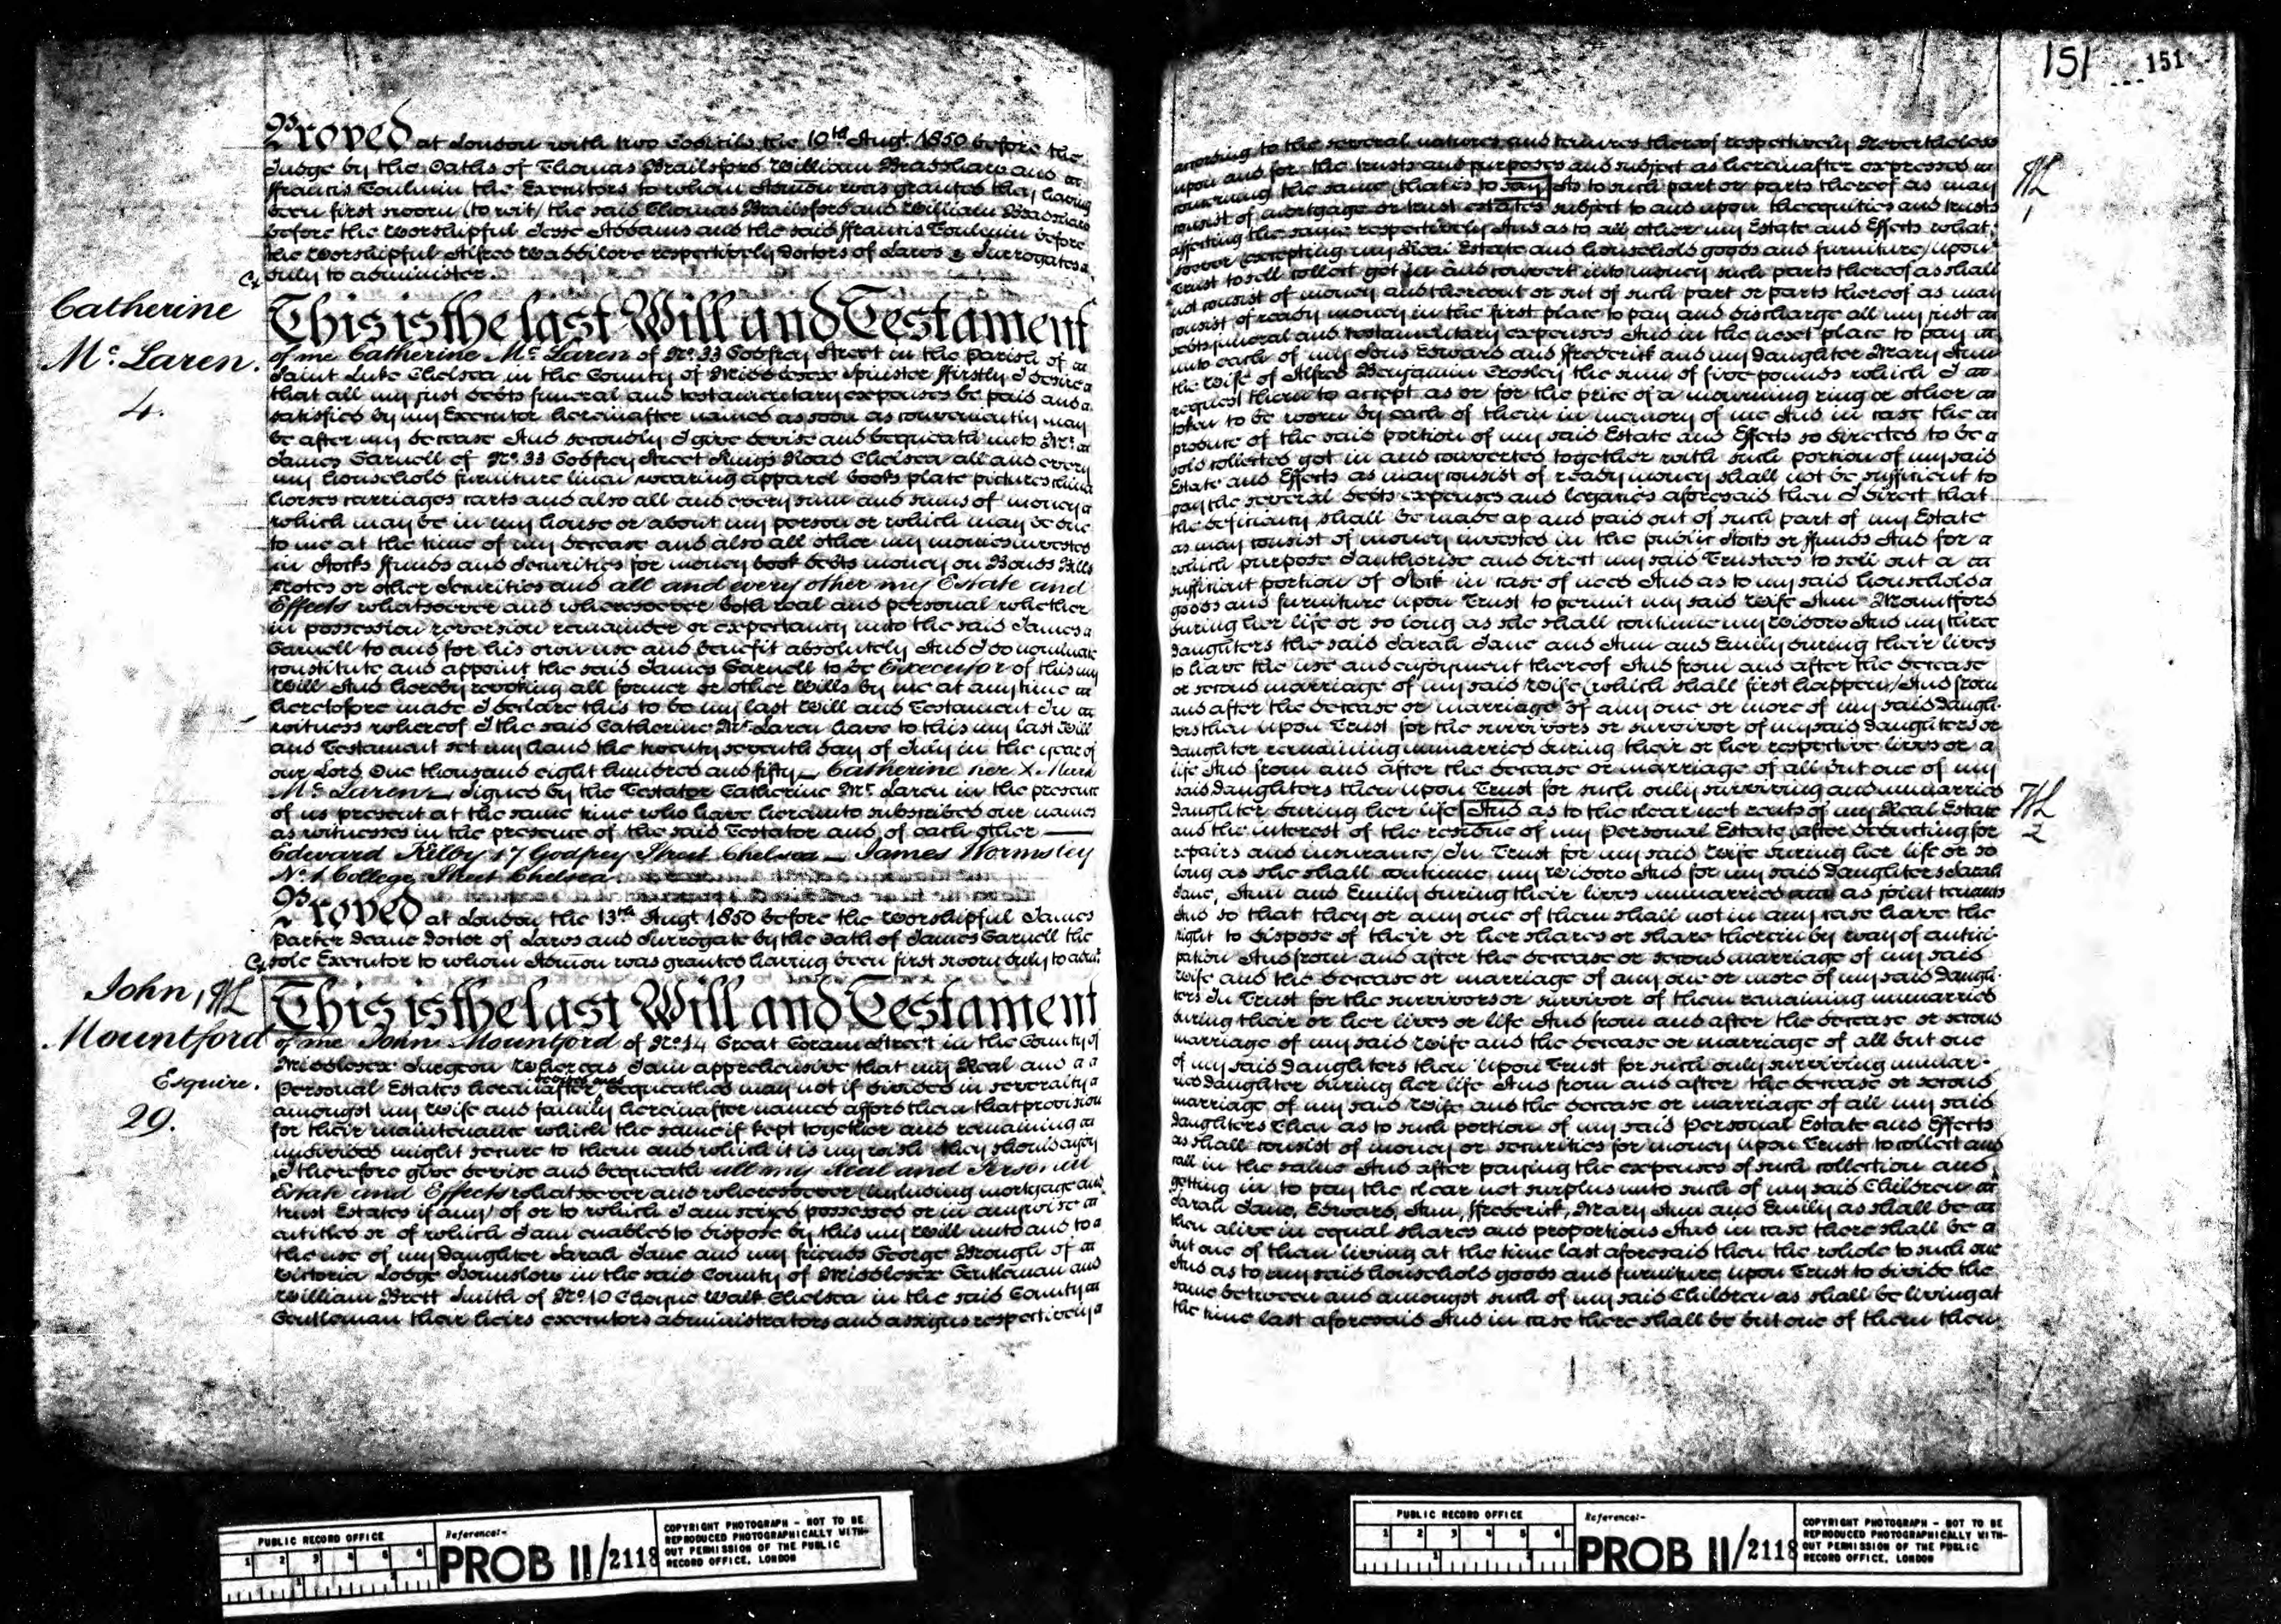 Proved at London with two Codicils the 10th Augt. 1850 before the
Judge by the Oaths of Thomas Brailsford William Bradshaw and
ffrancis Toulmin the Executors to whom Admon was granted they having
been first sworn (to wit) the said Thomas Brailsford and William Bradshaw
before the Worshipful Jesse Addams and the said ffrancis Toulmin before
the Worshipful Alfred Waddilove respectively Doctors of Laws & Surrogates
duly to administer.
Catherine
Mc. Laren.
4.
This is the last Will and Testament
of me Catherine Mc Laren of No. 33 Godfrey Street in the Parish of
Saint Luke Chelsea in the County of Middlesex Spinster ffirstly I desire
that all my just debts funeral and testamentary expenses be paid and
satisfied by my Executor hereinafter named as soon as conveniently may
be after my decease And secondly I give devise and bequeath unto Mr.
James Garnell of No. 33 Godfrey Street Kings Road Chelsea all and every
my household furniture linen wearing apparel books plate pictures china
horses carriages carts and also all and every sum and sums of money
which may be in my house or about my person or which may be due
to me at the time of my decease and also all other my monies invested
in Stocks ffunds and Securities for money book debts money on Bonds Bills
Notes or other Securities and all and every other my Estate and
Effects whatsoever and wheresoever both real and personal whether
in possession reversion remainder or expectancy unto the said James
Garnell to and for his own use and benefit absolutely And I do nominate
constitute and appoint the said James Garnell to be Executor of this my
Will And hereby revoking all former or other Wills by me at any time
heretofore made I declare this to be my last Will and Testament In
witness whereof I the said Catherine Mc Laren have to this my last Will
and Testament set my hand the twenty seventh day of July in the year of
our Lord One thousand eight hundred and fifty – Catherine her X Mark
Mc Laren – Signed by the Testator Catherine Mc Laren in the presence
of us present at the same time who have hereunto subscribed our names
as witnesses in the presence of the said Testator and of each other –
Edward Kilby 17 Godfrey Street Chelsea – James Wormsley
No. 1 College Street Chelsea.
Proved at London the 13th Augt 1850 before the Worshipful James
Parker Deane Doctor of Laws and Surrogate by the Oath of James Garnell the
sole Executor to whom Admon was granted having been first sworn duly to admr.
John
Mountford
Esquire.
29.
This is the last Will and Testament
of me John Mountford of No. 14 Great Coram Street in the County of
Middlesex Surgeon Whereas I am apprehensive that my Real and
Personal Estates hereinafter devised and bequeathed may not if divided in severalty
amongst my Wife and family hereinafter named afford them that provision
for their maintenance which the same if kept together and remaining
undivided might secure to them and which it is my wish they should enjoy
I therefore give devise and bequeath all my Real and Personal
Estate and Effects whatsoever and wheresoever (including mortgage and
trust Estates if any) of or to which I am seized possessed or in anywise
entitled or of which I am enabled to dispose by this my Will unto and to
the use of my daughter Sarah Jane and my friends George Brough of
Victoria Lodge Hounslow in the said County of Middlesex Gentleman and
William Brett Smith of No. 10 Cheyne Walk Chelsea in the said County
Gentleman their heirs executors administrators and assigns respectively
151 151
according to the several natures and tenures thereof respectively Nevertheless
upon and for the trusts and purposes and subject as hereinafter expressed
concerning the same (that is to say) As to such part or parts thereof as may
consist of mortgage or trust estates subject to and upon the equities and trusts
affecting the same respectively And as to all other my Estate and Effects what-
soever (excepting my Real Estate and household goods and furniture) upon
Trust to sell collect get in and convert into money such parts thereof as shall
not consist of money and thereout or out of such part or parts thereof as may
consist of ready money in the first place to pay and discharge all my just
debts funeral and testamentary expenses And in the next place to pay
unto each of my Sons Edward and ffrederick and my Daughter Mary Ann
the Wife of Alfred Benjamin Crosley the sum of five pounds which I
request them to accept as or for the price of a mourning ring or other
token to be worn by each of them in memory of me And in case the
produce of the said portion of my said Estate and Effects so directed to be
sold collected got in and converted together with such portion of my said
Estate and Effects as may consist of ready money shall not be sufficient to
pay the several debts expenses and legacies aforesaid then I direct that
the deficiency shall be made up and paid out of such part of my Estate
as may consist of money invested in the public Stocks or ffunds And for
which purpose I authorise and direct my said Trustees to sell out a
sufficient portion of Stock in case of need And as to my said household
goods and furniture upon Trust to permit my said Wife Ann Mountford
during her life or so long as she shall continue my widow And my three
daughters the said Sarah Jane and Ann and Emily during their lives
to have the use and enjoyment thereof And from and after the decease
or second marriage of my said Wife (which shall first happen) And from
and after the decease or marriage of any one or more of my said Daugh-
ters then upon Trust for the survivors or survivor of my said daughters or
daughter remaining unmarried during their or her respective lives or
life And from and after the decease or marriage of all but one of my
said daughters then upon Trust for such only surviving and unmarried
daughter during her life And as to the clear net rents of my Real Estate
and the interest of the residue of my personal Estate (after deducting for
repairs and insurance) In Trust for my said Wife during her life or so
long as she shall continue my widow And for my said daughters Sarah
Jane, Ann and Emily during their lives unmarried and as joint tenants
And so that they or any one of them shall not in any case have the
right to dispose of their or her shares or share therein by way of antici-
pation And from and after the decease or second marriage of my said
Wife and the decease or marriage of any one or more of my said Daugh-
ters In Trust for the survivors or survivor of them remaining unmarried
during their or her lives or life And from and after the decease or second
marriage of my said Wife and the decease or marriage of all but one
of my said daughters then upon Trust for such only surviving unmar-
ried daughter during her life And from and after the decease or second
marriage of my said Wife and the decease or marriage of all my said
daughters Then as to such portion of my said personal Estate and Effects
as shall consist of money or securities for money upon Trust to collect and
call in the same And after paying the expenses of such collection and
getting in to pay the clear net surplus unto such of my said Children
Sarah Jane, Edward, Ann, ffrederick, Mary Ann and Emily as shall be
then alive in equal shares and proportions And in case there shall be
but one of them living at the time last aforesaid then the whole to such one
And as to my said household goods and furniture upon Trust to divide the
same between and amongst such of my said Children as shall be living at
the time last aforesaid And in case there shall be but one of them then
PUBLIC RECORD OFFICE
1 2 3 4 5 6
Reference:-
PROB 11/2118
COPYRIGHT PHOTOGRAPH - NOT TO BE
REPRODUCED PHOTOGRAPHICALLY WITH-
OUT PERMISSION OF THE PUBLIC
RECORD OFFICE, LONDON
PUBLIC RECORD OFFICE
1 2 3 4 5 6
Reference:-
PROB 11/2118
COPYRIGHT PHOTOGRAPH - NOT TO BE
REPRODUCED PHOTOGRAPHICALLY WITH-
OUT PERMISSION OF THE PUBLIC
RECORD OFFICE, LONDON